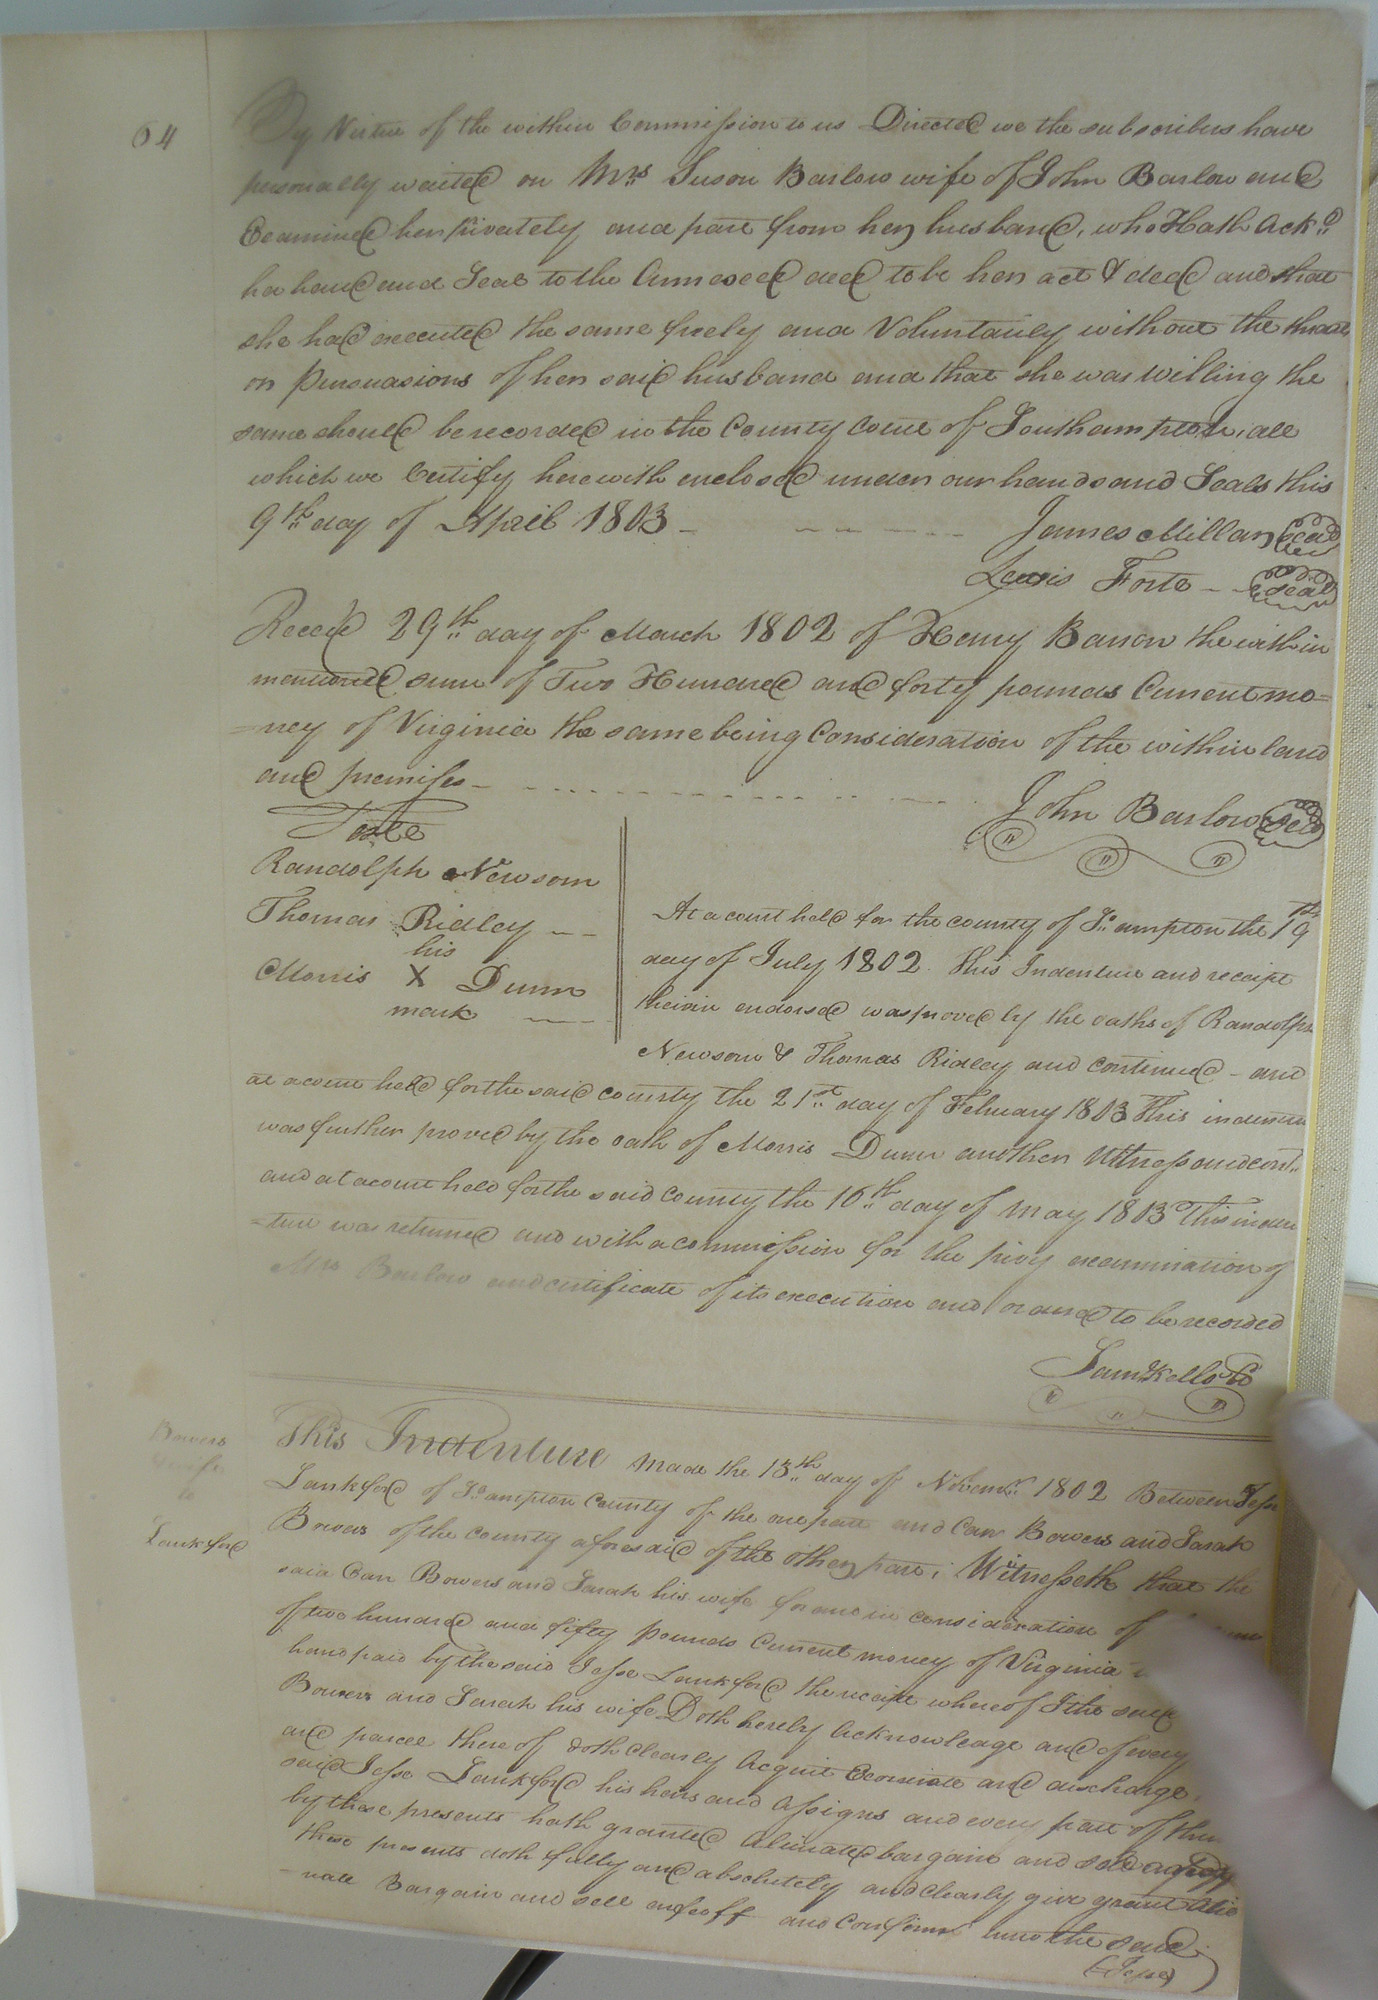 64
By Virtue of the within Commission to us Directed we the subscribers have
personally waited on Mrs Suson Barlow wife of John Barlow and
Examined her privately and part from her husband, who Hath Ackd
her hand and Seal to the Annexed deed to be her act & deed and that
she had executed the same freely and Voluntarily without the threats
or Persuasions of her said husband and that she was willing the
same should be recorded in the County Court of Southampton, all
which we Certify herewith enclosed under our hands and Seals this
9th day of April 1803
James Millar Seal
Lewis Forte Seal
Receid 29th day of March 1802 of Henry Barron the within
mentioned sum of Two Hundred and forty pounds Current mo=
=ney of Virginia the same being Consideration of the within land
and premises
John Barlow Seal
Teste
Randolph Newsom
Thomas Ridley
his
Morris X Dunn
mark
At a court held for the county of So ampton the 19th
day of July 1802. This Indenture and receipt
therein endorsed was proved by the oaths of Randolph
Newsom & Thomas Ridley and continued - and
at a court held for the said county the 21st day of February 1803 This indenture
was further proved by the oath of Morris Dunn another Witness and cont.
and at a court held for the said county the 16th day of May 1803 This inden
=ture was returned and with a commission for the privy examination of
Mrs Barlow and certificate of its execution and ordered to be recorded
Saml Kello Cl
Bowers
& wife
to
Lankford
This Indenture made the 13th day of Novemr 1802 Between Jesse
Lankford of So ampton County of the one part and Carr Bowers and Sarah
Bowers of the county aforesaid of the other part; Witnesseth that the
said Carr Bowers and Sarah his wife for and in consideration of
of two hundred and fifty pounds Current money of Virginia
hand paid by the said Jesse Lankford the receipt whereof I the said
Bowers and Sarah his wife Doth hereby Acknowledge and of every
and parcel there of doth clearly Acquit Exonerate and discharge
said Jesse Lankford his heirs and Assigns and every part of them
by these presents hath granted Alinated bargain and sold and by
these presents doth fully and absolutely and clearly give grant Alie
=nate Bargain and sell enfeoff and Confirm unto the said
(Jesse)